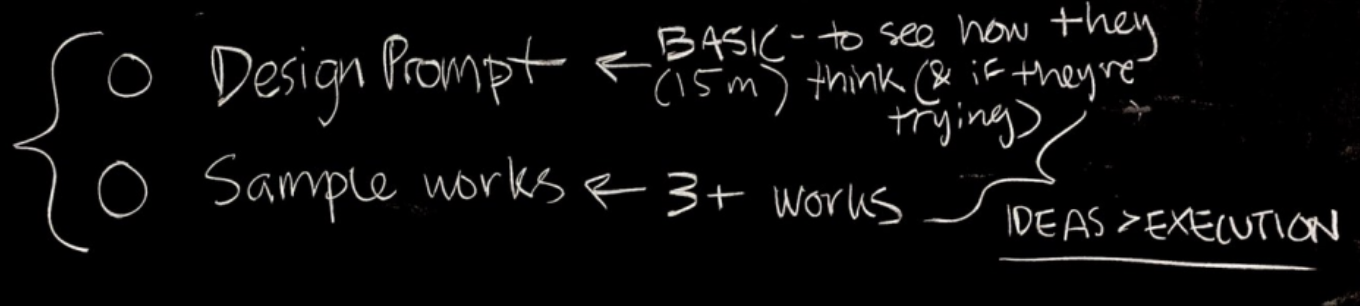 Design Prompt ← BASIC - to see how they
(15m) think (& if they're
trying)
Sample works ← 3+ works
IDEAS > EXECUTION